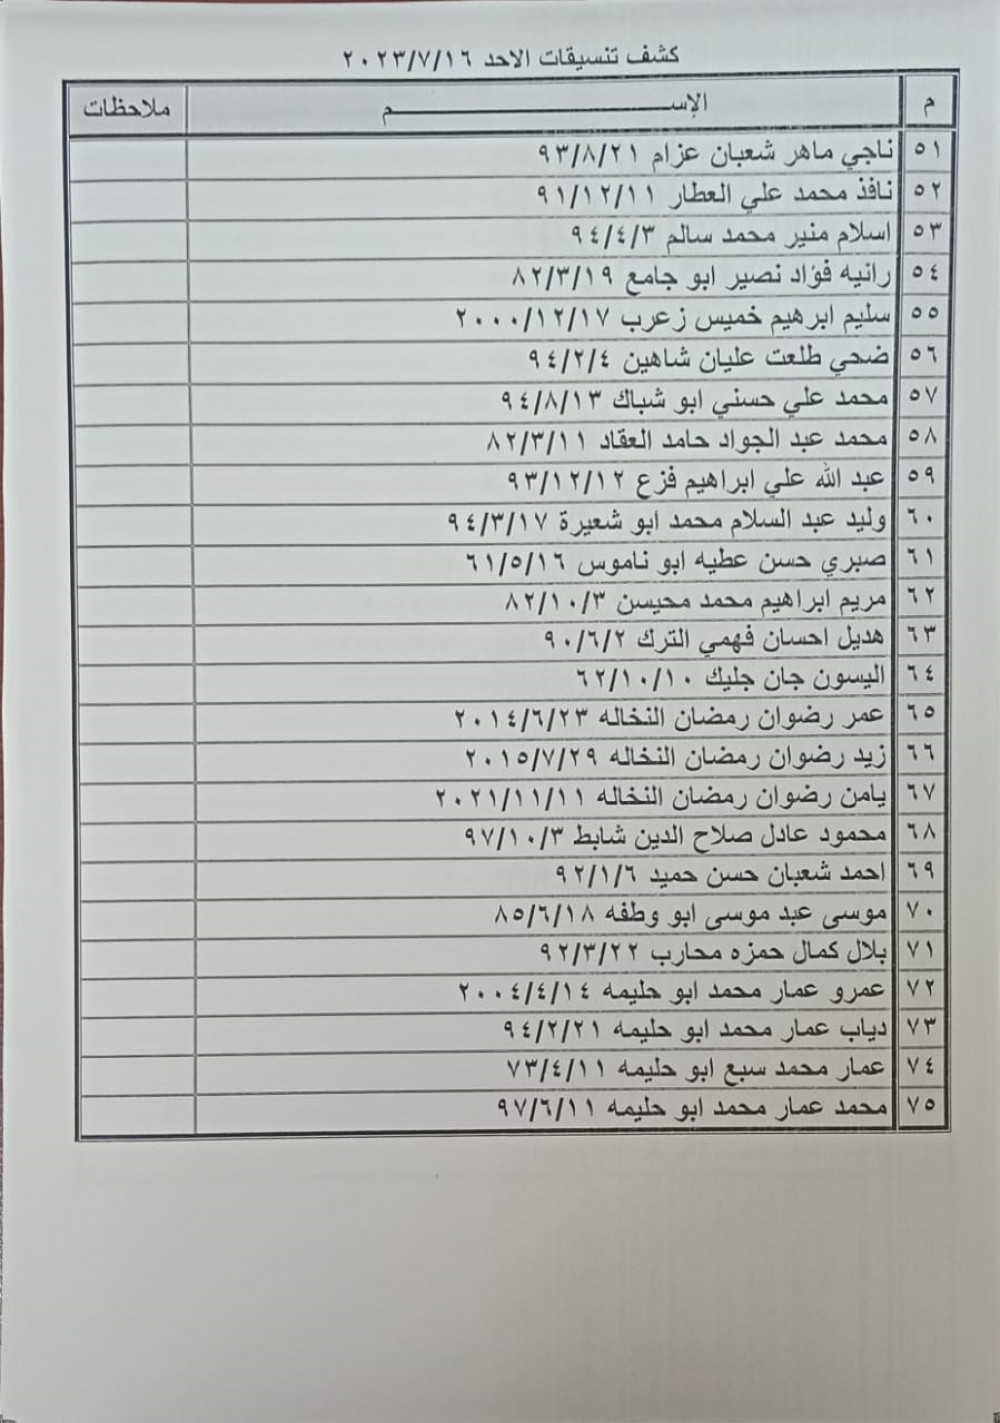 كشف تنسيقات الاحد ٢٠٢٣/٧/١٦
م الإســـــــــم ملاحظات
٥١ ناجي ماهر شعبان عزام ٩٣/٨/٢١
٥٢ نافذ محمد علي العطار ٩١/١٢/١١
٥٣ اسلام منير محمد سالم ٩٤/٤/٣
٥٤ رانيه فؤاد نصير ابو جامع ٨٢/٣/١٩
٥٥ سليم ابرهيم خميس زعرب ٢٠٠٠/١٢/١٧
٥٦ ضحي طلعت عليان شاهين ٩٤/٢/٤
٥٧ محمد علي حسني ابو شباك ٩٤/٨/١٣
٥٨ محمد عبد الجواد حامد العقاد ٨٢/٣/١١
٥٩ عبد الله علي ابراهيم فزع ٩٣/١٢/١٢
٦٠ وليد عبد السلام محمد ابو شعيرة ٩٤/٣/١٧
٦١ صبري حسن عطيه ابو ناموس ٦١/٥/١٦
٦٢ مريم ابراهيم محمد محيسن ٨٢/١٠/٣
٦٣ هديل احسان فهمي الترك ٩٠/٦/٢
٦٤ اليسون جان جليك ٦٢/١٠/١٠
٦٥ عمر رضوان رمضان النخاله ٢٠١٤/٦/٢٣
٦٦ زيد رضوان رمضان النخاله ٢٠١٥/٧/٢٩
٦٧ يامن رضوان رمضان النخاله ٢٠٢١/١١/١١
٦٨ محمود عادل صلاح الدين شابط ٩٧/١٠/٣
٦٩ احمد شعبان حسن حميد ٩٢/١/٦
٧٠ موسى عبد موسى ابو وطفه ٨٥/٦/١٨
٧١ بلال كمال حمزه محارب ٩٢/٣/٢٢
٧٢ عمرو عمار محمد ابو حليمه ٢٠٠٤/٤/١٤
٧٣ دياب عمار محمد ابو حليمه ٩٤/٢/٢١
٧٤ عمار محمد سبع ابو حليمه ٧٣/٤/١١
٧٥ محمد عمار محمد ابو حليمه ٩٧/٦/١١